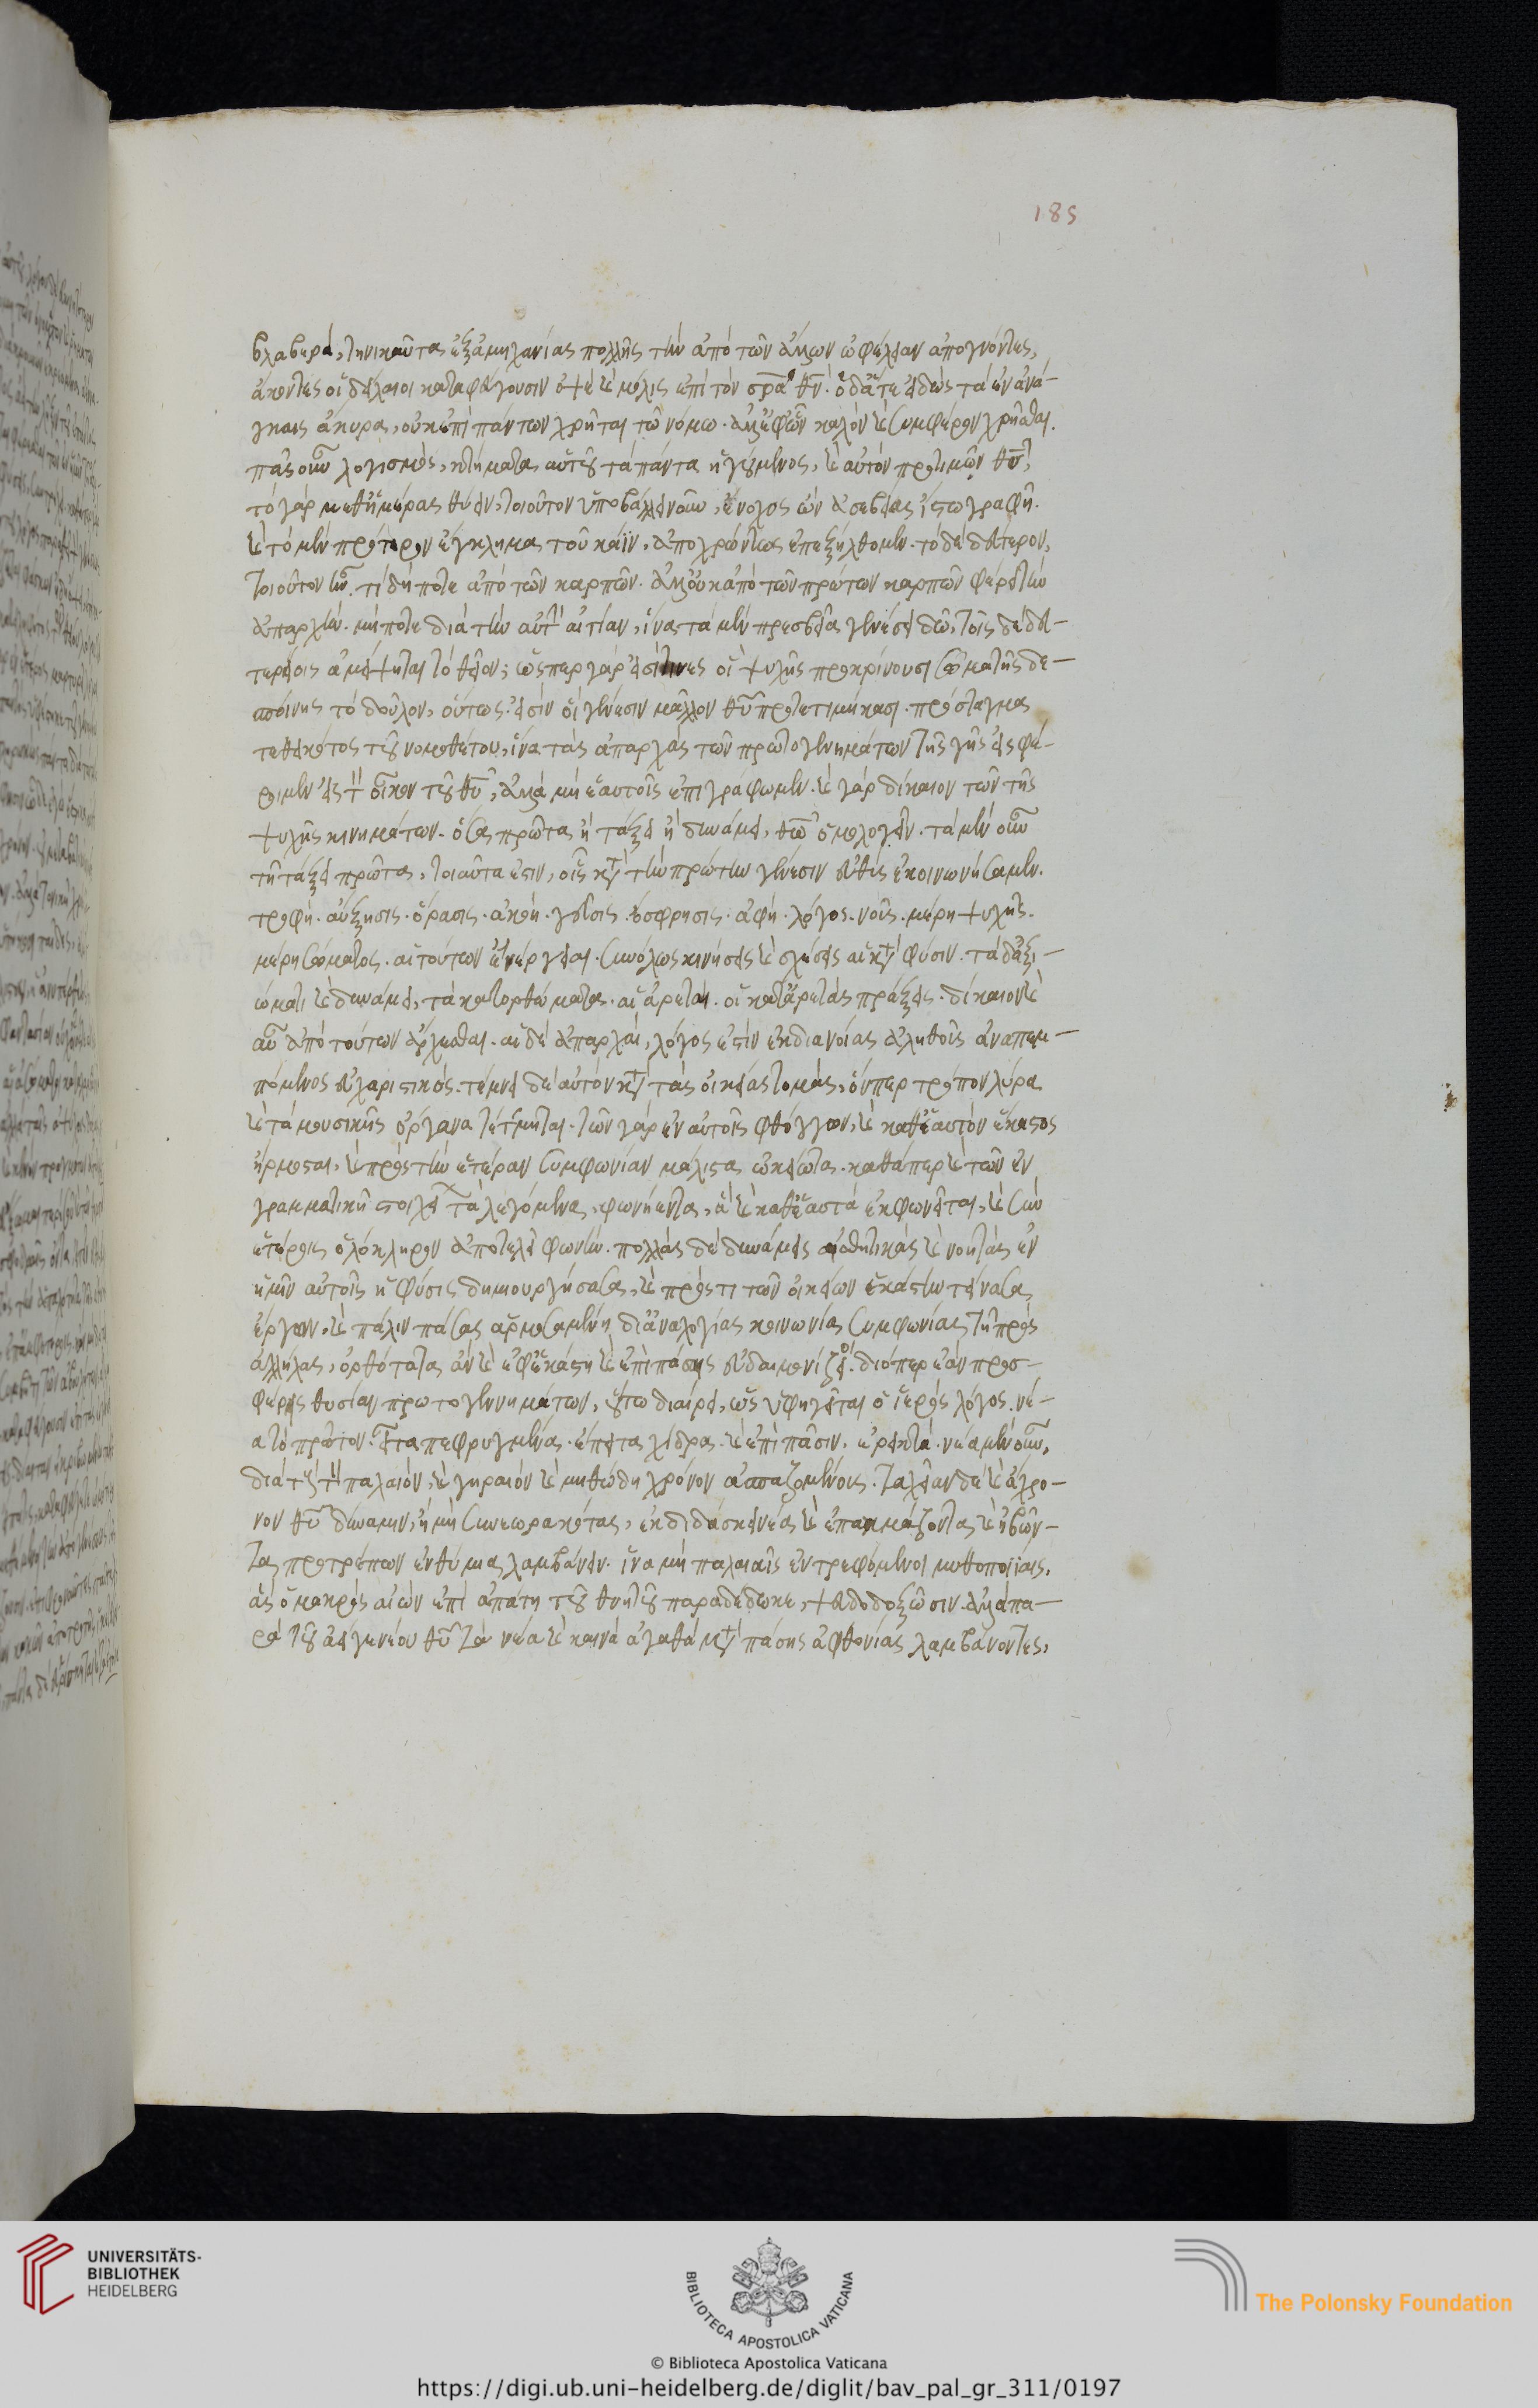 185
βλαβερά, τηνικαῦτα ἐξ ἀμηχανίας πολλῆς τὴν ἀπὸ τῶν ἄλλων ὠφέλειαν ἀπογνόντες,
ἄκοντες οἱ δείλαιοι καταφεύγουσιν ὀψὲ καὶ μόλις ἐπὶ τὸν σρ̅α θν̅. ὁ δὲ ἅτε εἰδὼς τὰ ἐν ἀνά-
γκαις ἄκυρα, οὐκ ἐπὶ πάντων χρῆται τῷ νόμω. ἀλλ' ἐφ' ὧν καλὸν καὶ συμφέρον χρῆσθαι.
πᾶς οὖν λογισμὸς, κτήματα αὑτοῦ τὰ πάντα ἡγούμενος, καὶ αὑτὸν προτιμῶν θυ̅,
τὸ γὰρ μεθ' ἡμέρας θύειν, τοιοῦτον ὑποβάλλει νοῦν, ἔνοχος ὢν ἀσεβείας ἴστω γραφῇ.
καὶ τὸ μὲν πρότερον ἔγκλημα τοῦ κάϊν, ἀποχρώντως ἐπεξήλθομεν. τὸ δὲ δεύτερον,
τοιοῦτον ἦν. τί δήποτε ἀπὸ τῶν καρπῶν. ἀλλ' οὐκ ἀπὸ τῶν πρώτων καρπῶν φέρει τὴν
ἀπαρχήν. μήποτε διὰ τὴν αὐτ αἰτίαν, ἵνα τὰ μὲν πρεσβεῖα γενέσει δῶ, τοῖς δὲ δευ-
τερείοις ἀμείψηται τὸ θεῖον; ὥσπερ γὰρ εἰσί τινες οἳ ψυχῆς προκρίνουσι σῶμα τῆς δε-
σποίνης τὸ δοῦλον, οὕτως εἰσὶν οἳ γένεσιν μᾶλλον θυ̅ προτετιμήκασι. πρόσταγμα
τεθεικότος τοῦ νομοθέτου, ἵνα τὰς ἀπαρχὰς τῶν πρωτογενημάτων τῆς γῆς εἰσφέ-
ρωμεν εἰς τὸν οἶκον τοῦ θυ̅, ἀλλὰ μὴ ἑαυτοῖς ἐπιγράφωμεν. καὶ γὰρ δίκαιον τῶν τῆς
ψυχῆς κινημάτων. ὅσα πρῶτα ἢ τάξει ἢ δυνάμει, θω̅ ὁμολογεῖν. τὰ μὲν οὖν
τῇ τάξει πρῶτα, τοιαῦτά ἐστιν, οἷς κατὰ τὴν πρώτην γένεσιν εὐθὺς ἐκοινωνήσαμεν.
τροφή. αὔξησις. ὅρασις. ἀκοή. γεῦσις. ὄσφρησις. ἁφή. λόγος. νοῦς. μέρη ψυχῆς.
μέρη σώματος. αἱ τούτων ἐνέργειαι. συνόλως κινήσεις καὶ σχέσεις αἱ κατὰ φύσιν. τὰ δ' ἀξι-
ώματι καὶ δυνάμει, τὰ κατορθώματα. αἱ ἀρεταί. αἱ κατ' ἀρετὰς πράξεις. δίκαιον καὶ
οὖν ἀπὸ τούτων ἄρχεσθαι. αἱ δὲ ἀπαρχαί, λόγος ἐστὶν ἐκ διανοίας ἀληθοῦς ἀναπεμ-
πόμενος εὐχαριστικός. τέμνει δὲ αὐτὸν κατὰ τὰς οἰκείας τομάς, ὅνπερ τρόπον λύρα
καὶ τὰ μουσικῆς ὄργανα τέτμηται. τῶν γὰρ ἐν αὐτοῖς φθόγγων, καὶ καθ' ἑαυτὸν ἕκαστος
ἥρμοσται, καὶ πρὸς τὴν ἑτέραν συμφωνίαν μάλιστα ὠκείωται. καθάπερ καὶ τῶν ἐν
γραμματικῇ στοιχεί τὰ λεγόμενα, φωνήεντα, ἃ καὶ καθ' ἑαυτὰ ἐκφωνεῖται, καὶ σὺν
ἑτέροις ὁλόκληρον ἀποτελεῖ φωνήν. πολλὰς δὲ δυνάμεις αἰσθητικὰς καὶ νοητὰς ἐν
ἡμῖν αὐτοῖς ἡ φύσις δημιουργήσασα, καὶ πρός τι τῶν οἰκείων ἑκάστην τείνασα
ἔργων, καὶ πάλιν πάσας ἁρμοσαμένη δι' ἀναλογίας κοινωνίας συμφωνίας τῇ πρὸς
ἀλλήλας, ὀρθότατα ἂν καὶ ἐφ' ἑκάστη καὶ ἐπὶ πάσαις εὐδαιμονίζοι. διόπερ ἐὰν προσ-
φέρης θυσίαν πρωτογεννημάτων, οὕτω διαίρει, ὡς ὑφηγεῖται ὁ ἱερὸς λόγος. νέ-
α τὸ πρῶτον. εἶτα πεφρυγμένα. ἔπειτα χίδρα. καὶ ἐπὶ πᾶσιν, ἐρεικτά. νέα μὲν οὖν,
διὰ τόδε τὸν παλαιὸν, καὶ γηραιὸν καὶ μυθώδη χρόνον ἀσπαζομένους. ταχεῖαν δὲ καὶ ἄχρο-
νον θυ̅ δύναμιν, ἢ μὴ συνεωρακότας, ἐκδιδάσκει νέα καὶ ἐπακμάζοντα καὶ ἡβῶν-
τα προτρέπων ἐνθύμια λαμβάνειν. ἵνα μὴ παλαιαῖς ἐντρεφόμενοι μυθοποιΐαις,
ἃς ὁ μακρὸς αἰὼν ἐπὶ ἀπάτῃ τοῦ θνητοῦ παραδέδωκε, ψευδοδοξῶσιν. ἀλλὰ πα-
ρὰ τοῦ ἀειγενέου θυ̅ τὰ νέα καὶ καινὰ ἀγαθὰ μετὰ πάσης ἀφθονίας λαμβάνοντες,
UNIVERSITÄTS-
BIBLIOTHEK
HEIDELBERG
BIBLIOTECA APOSTOLICA VATICANA
The Polonsky Foundation
© Biblioteca Apostolica Vaticana
https://digi.ub.uni-heidelberg.de/diglit/bav_pal_gr_311/0197